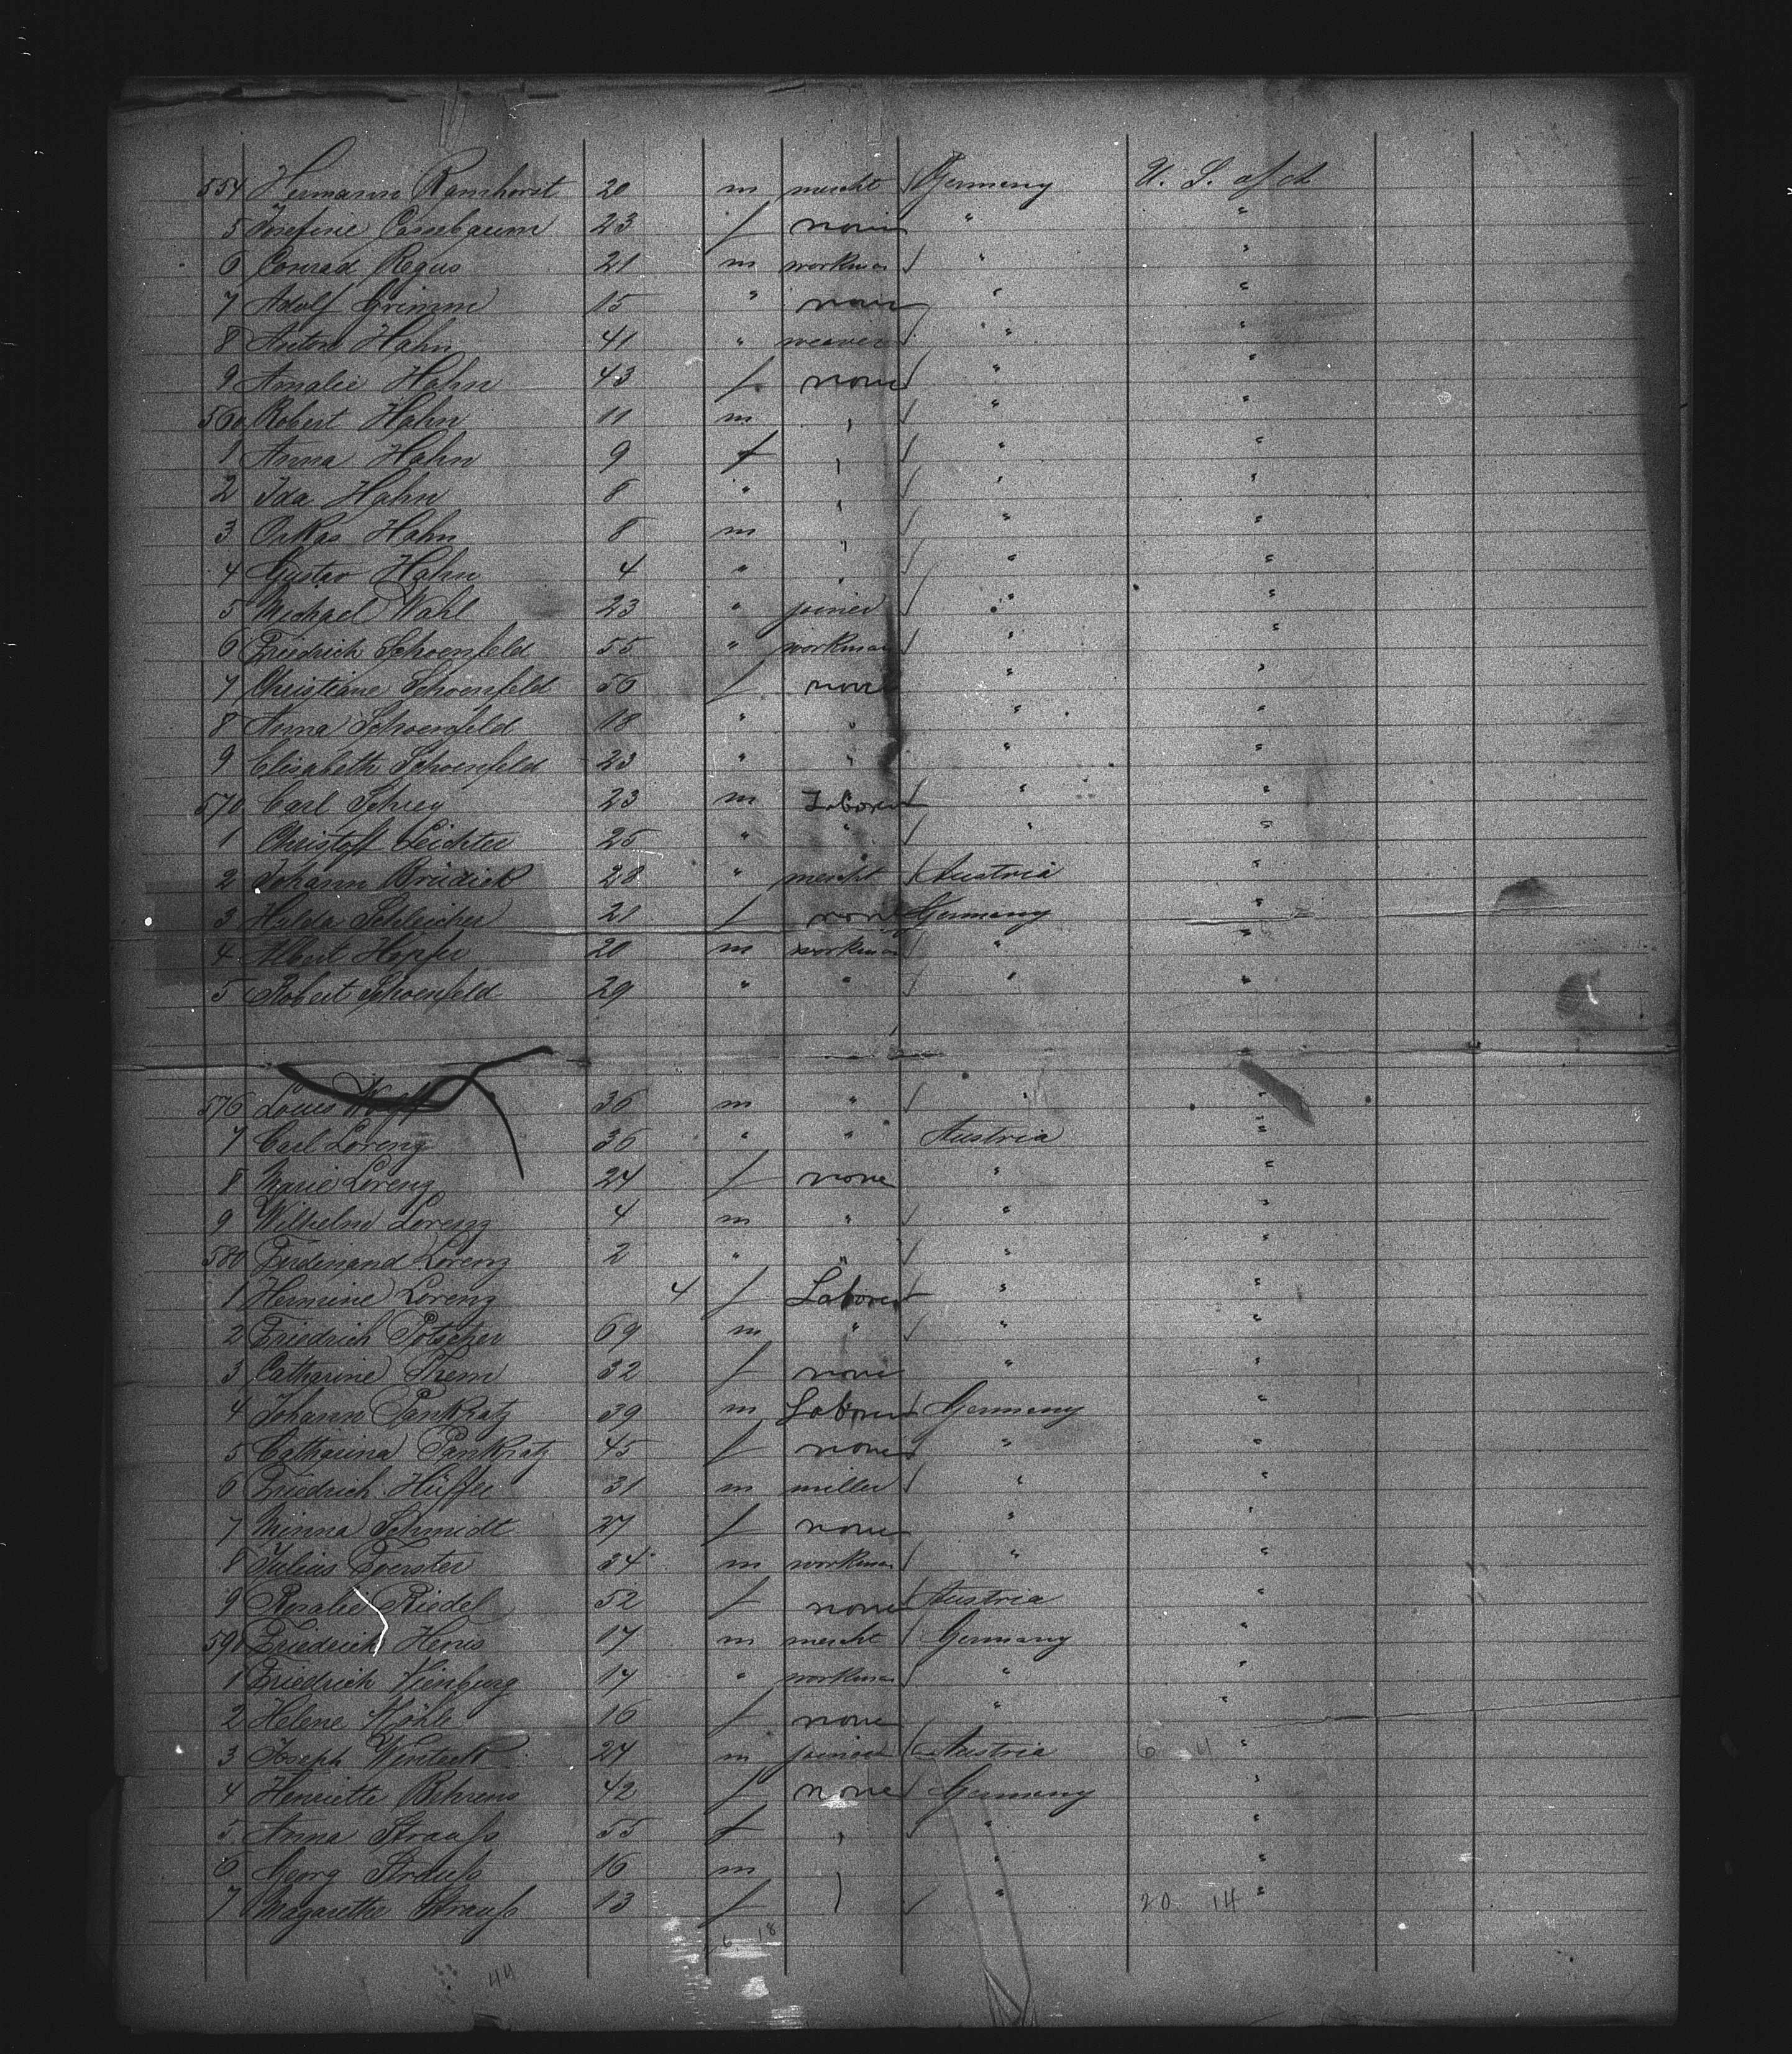 554 Hermann Ramhorst 20 m mercht Germany U. S. of Am
5 Josefine Cassebaum 23 f none " "
6 Conrad Regus 21 m workman " "
7 Adolf Grimm 15 " none " "
8 Anton Hahn 41 " weaver " "
9 Amalie Hahn 43 f none " "
560 Robert Hahn 11 m " " "
1 Anna Hahn 9 f " " "
2 Ida Hahn 8 " " " "
3 Oskar Hahn 8 m " " "
4 Gustav Hahn 4 " " " "
5 Michael Wahl 23 " joiner " "
6 Friedrich Schoenfeld 55 " workman " "
7 Christiane Schoenfeld 50 f none " "
8 Anna Schoenfeld 18 " " " "
9 Elisabeth Schoenfeld 23 " " " "
570 Carl 23 m Laborer " "
1 Christoff Leichter 25 " " " "
2 Johann Brudick 28 " mercht Austria "
3 Hulda Schleicher 21 f none Germany "
4 Albert Hopfer 20 m workman " "
5 Robert Schoenfeld 29 " " " "
576 Louis Wolff 36 m " " "
7 Carl Lorenz 36 " " Austria "
8 Marie Lorenz 24 f none " "
9 Wilhelm Lorenz 4 m " " "
580 Ferdinand Lorenz 2 " " " "
1 Hermine Lorenz 4 f Laborer " "
2 Friedrich Potscher 69 m " " "
3 Catharine Threm 32 f none " "
4 Johann Pankratz 39 m Laborer Germany "
5 Catharina Pankratz 45 f none " "
6 Friedrich Hüffer 31 m miller " "
7 Minna Schmidt 27 f none " "
8 Julius Foerster 34 m workman " "
9 Rosalie Riedel 52 f none Austria "
590 Friedrich Henis 17 m mercht Germany "
1 Friedrich Vienburg 17 " workman " "
2 Helene Möhle 16 f none " "
3 Joseph 24 m joiner Austria 6 4 "
4 Henriette Behrens 42 f none Germany "
5 Anna Strauß 55 f " " "
6 Georg Strauß 16 m " " "
7 Magarethe Strauß 13 f " " 20 14 "
6 18
44